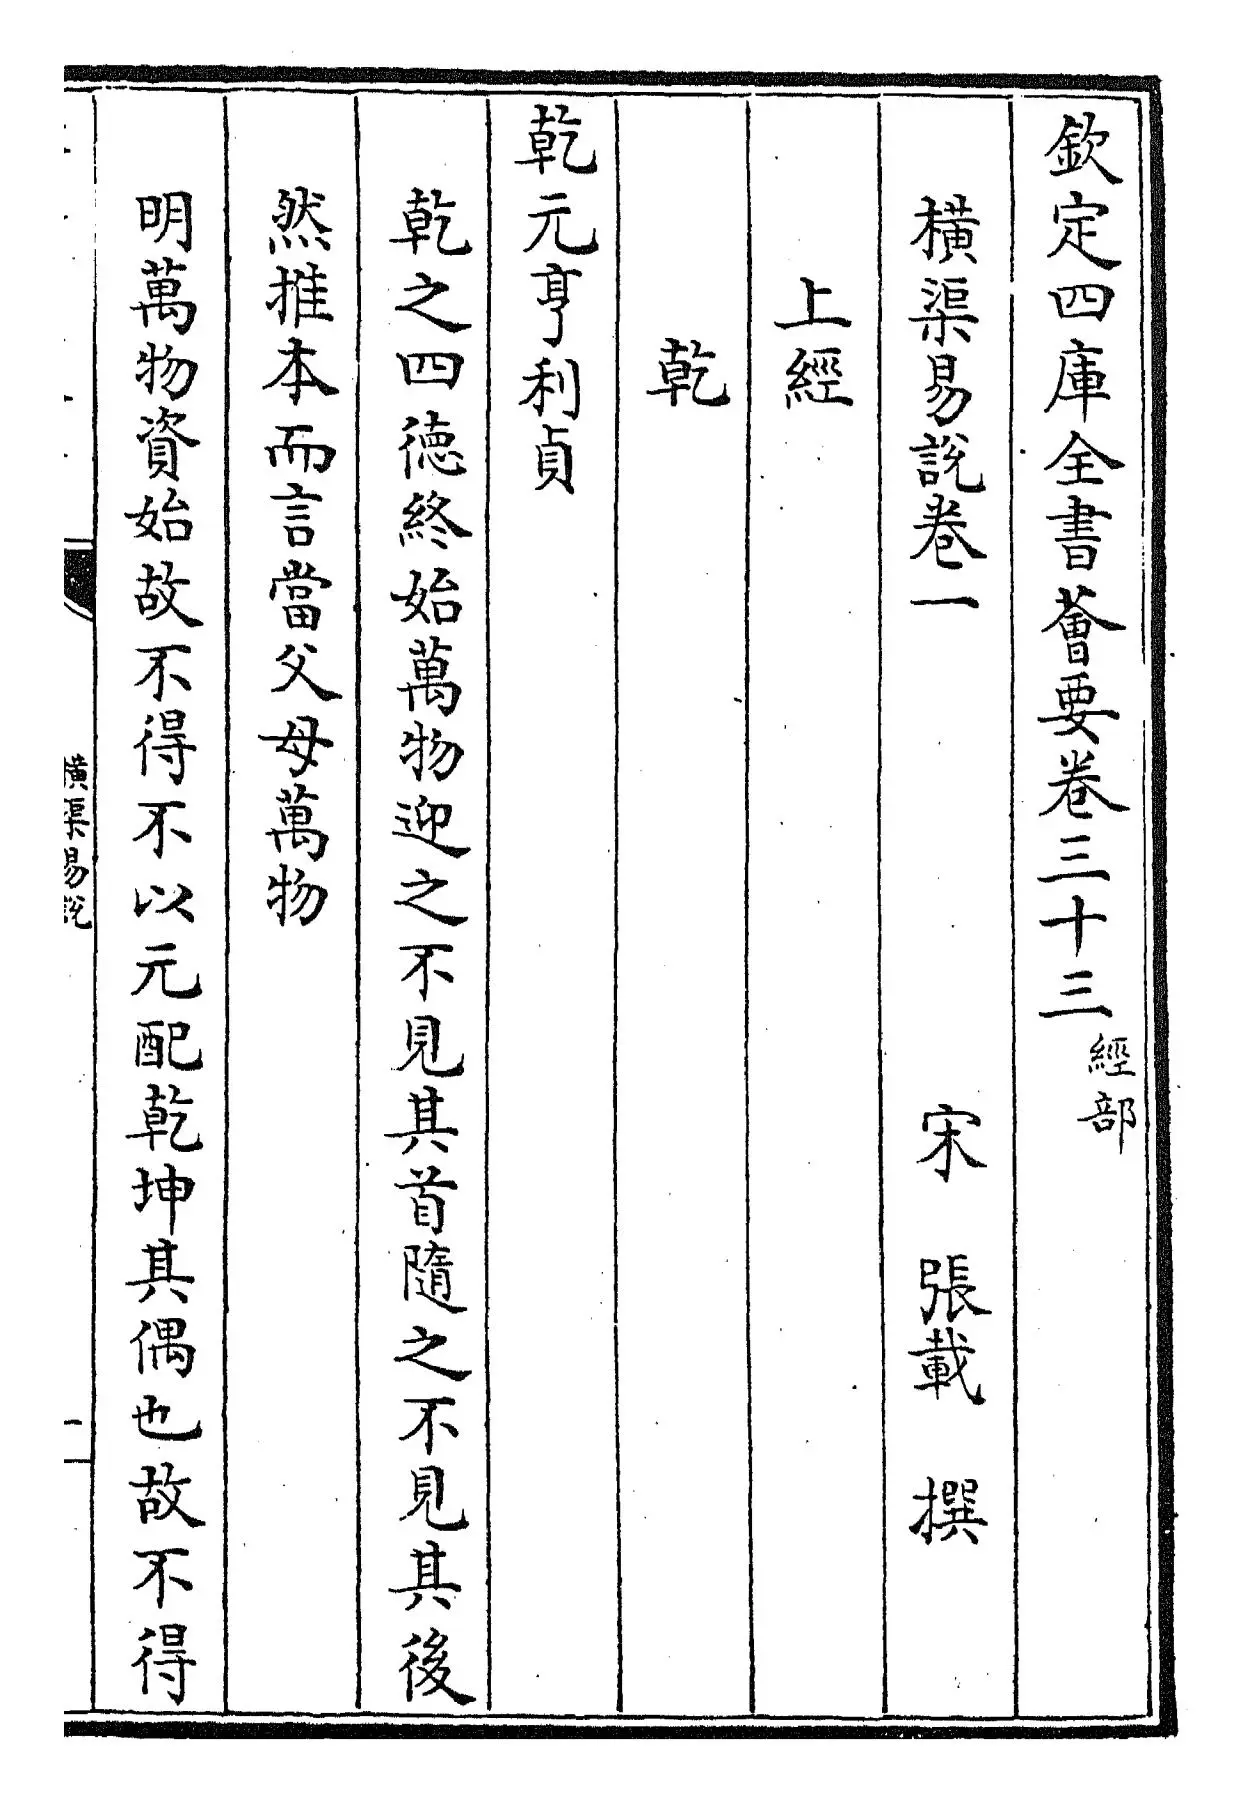 欽定四庫全書薈要卷三十三經部
橫渠易說卷一 宋 張載 撰
上經
乾
乾元亨利貞
乾之四德終始萬物迎之不見其首隨之不見其後
然推本而言當父母萬物
明萬物資始故不得不以元配乾坤其偶也故不得
橫渠易說
一